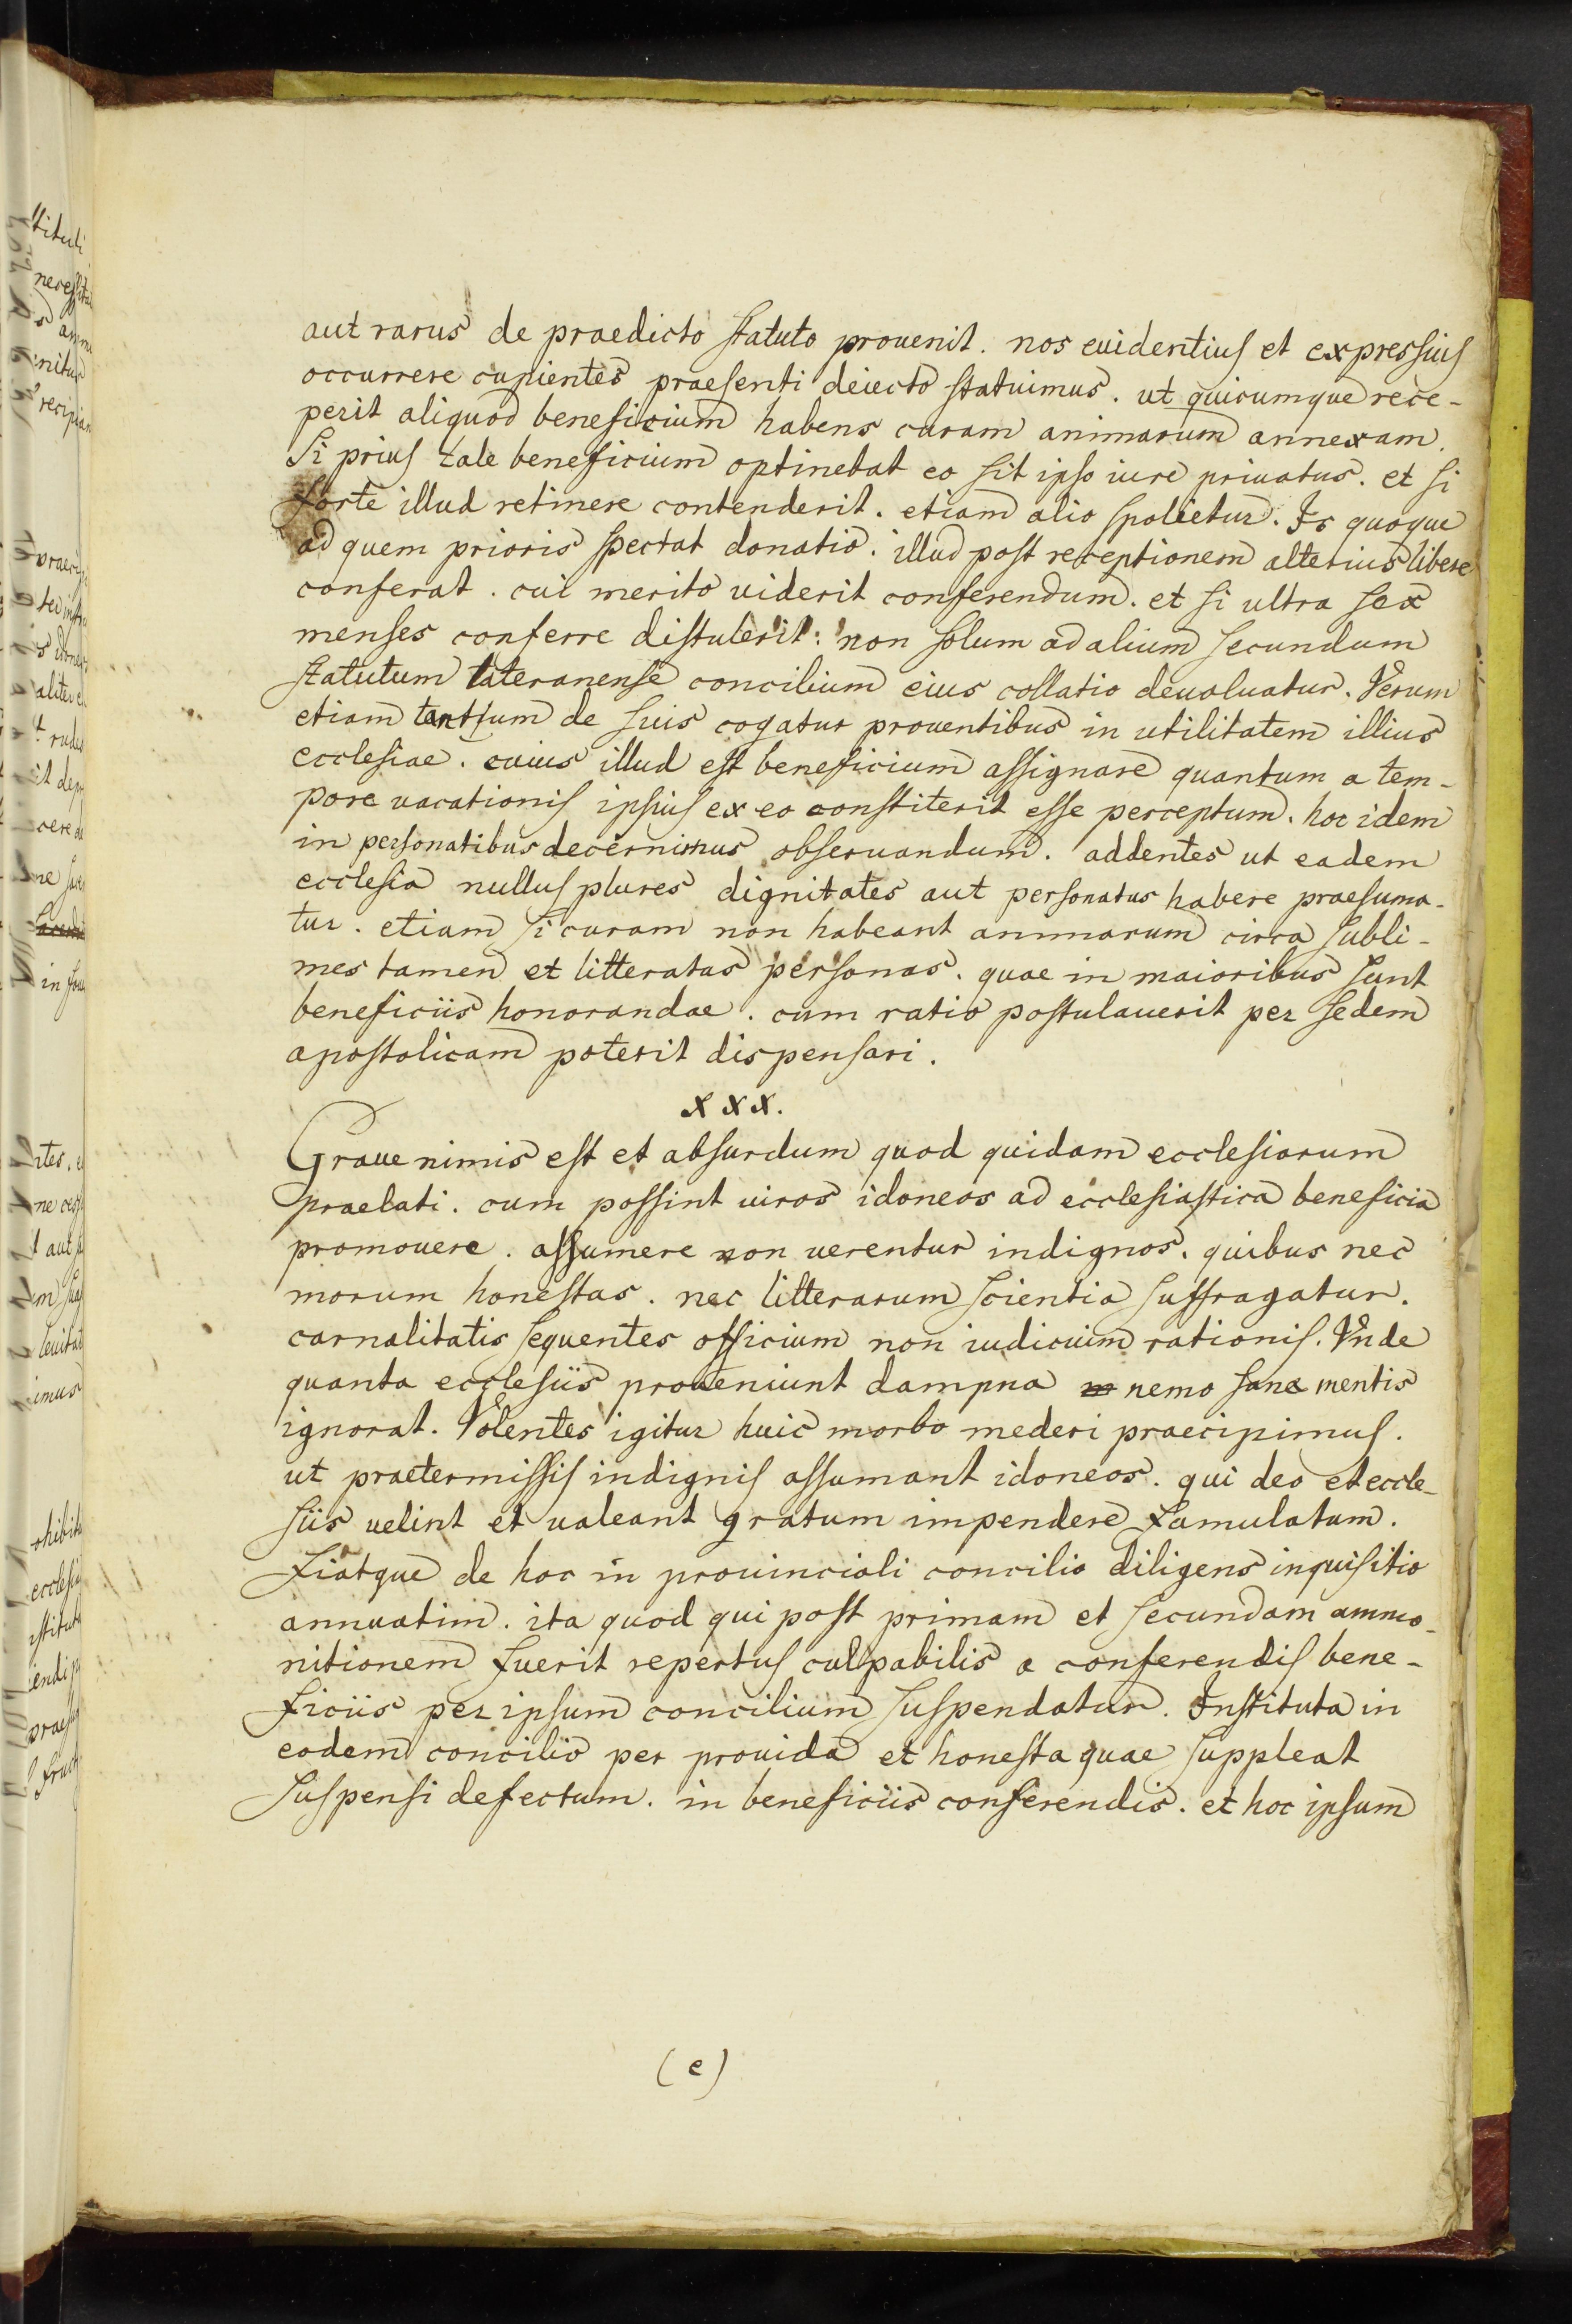 aut rarus de praedicto statuto prouenit. nos euidentius et expressius
occurrere cupientes praesenti deiecto statuimus. ut quicumque rece-
perit aliquod beneficium habens curam animarum annexam.
Si prius tale beneficium optinebat eo sit ipso iure priuatus. et si
forte illud retinere contenderit. etiam alio spolietur. Is quoque
ad quem prioris spectat donatio. illud post receptionem alterius libere
conferat. cui merito uiderit conferendum. et si ultra sex
menses conferre distulerit: non solum ad alium secundum
statutum lateranense concilium eius collatio deualuatur. Verum
etiam tantum de suis cogatur prouentibus in utilitatem illius
ecclesiae. cuius illud est beneficium assignare quantum a tem-
pore uacationis ipsius ex eo constiterit esse perceptum. hoc idem
in personatibus decernimus obseruandum. addentes ut eadem
ecclesia nullus plures dignitates aut personatus habere praesuma-
tur. etiam si curam non habeant animarum circa subli-
mes tamen et litteratas personas. quae in maioribus sunt
beneficiis honorandae. cum ratio postulauerit per sedem
apostolicam poterit dispensari.
XXX.
Graue nimis est et absurdum quod quidam ecclesiarum
praelati. cum possint uiros idoneos ad ecclesiastica beneficia
promouere. assumere non uerentur indignos. quibus nec
morum honestas. nec litterarum scientia suffragatur.
carnalitatis sequentes officium non iudicium rationis. Vnde
quanta ecclesiis proueniunt dampna nemo sane mentis
ignorat. Volentes igitur huic morbo mederi praecipimus.
ut praetermissis indignis assumant idoneos. qui deo et eccle-
siis uelint et ualeant gratum impendere famulatum.
Fiatque de hoc in prouinciali concilio diligens inquisitio
annuatim. ita quod qui post primam et secundam ammo-
nitionem fuerit repertus culpabilis a conferendis bene-
ficiis per ipsum concilium suspendatur. Instituta in
eodem concilio per prouida et honesta quae suppleat
suspensi defectum. in beneficiis conferendis. et hoc ipsum
(e)